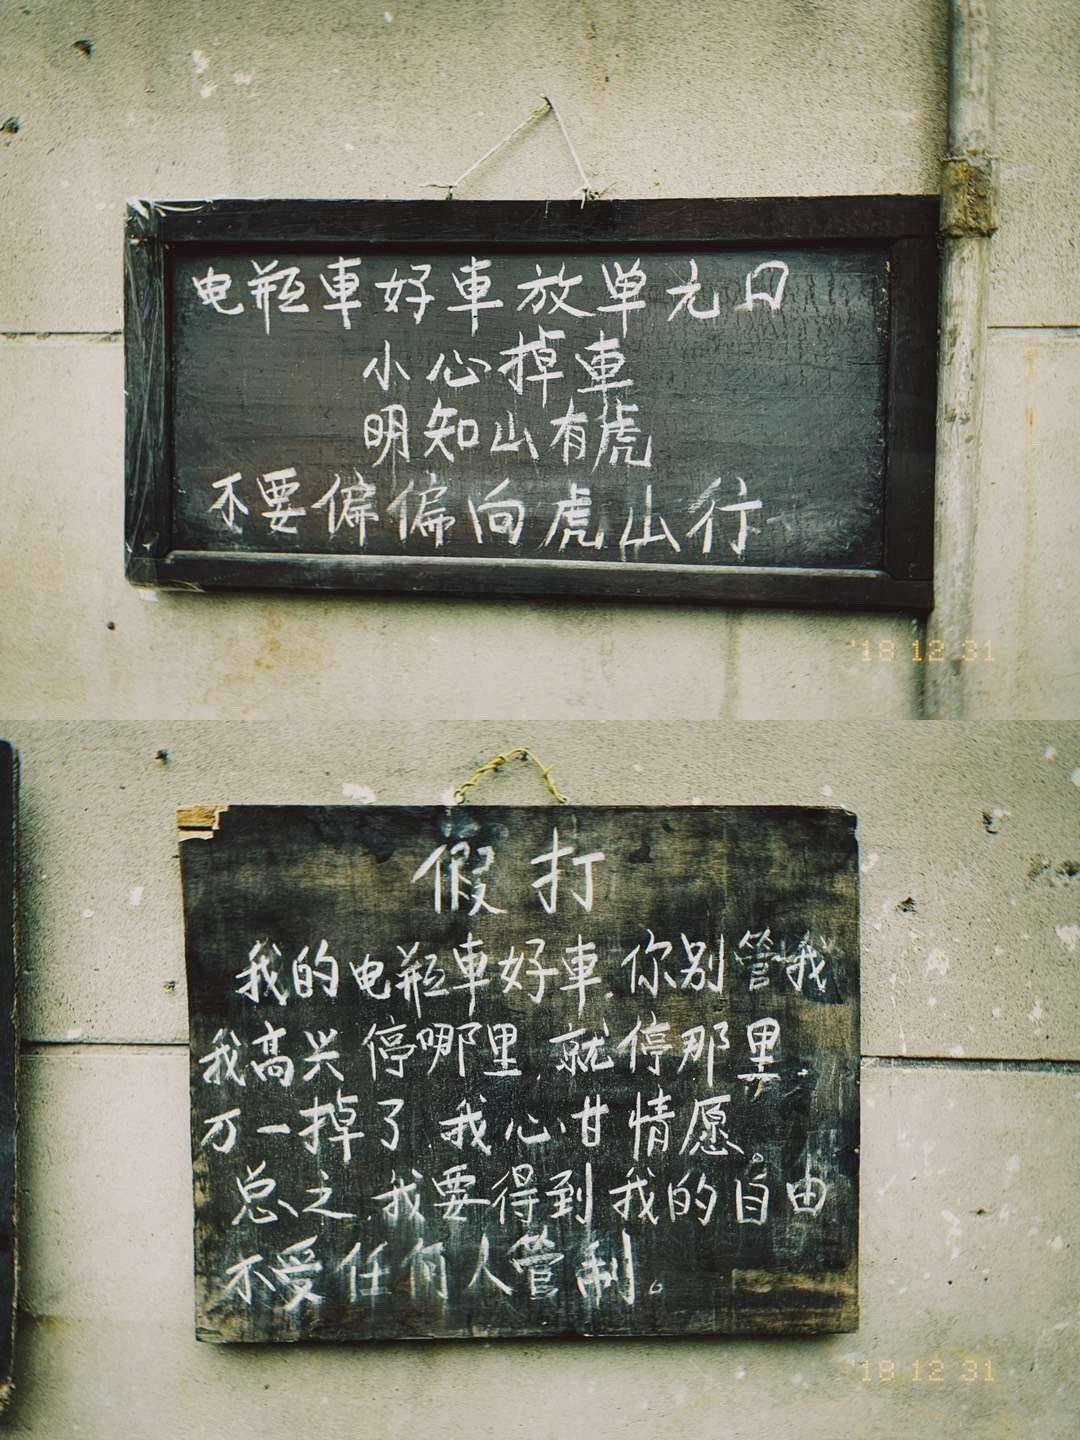 电瓶車好車放单元口
小心掉車
明知山有虎
不要偏偏向虎山行
'18 12 31
假打
我的电瓶車好車,你别管我
我高兴停哪里,就停那里.
万一掉了,我心甘情愿。
总之,我要得到我的自由
不受任何人管制。
'18 12 31